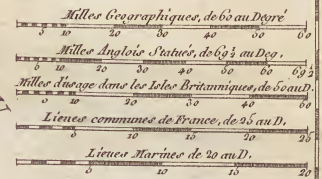 Milles Geographiques, de 60 au Degré
5 10 20 30 40 50 60
Milles Anglois Statués, de 69½ au Deg.
5 10 20 30 40 50 60 69½
Milles d'usage dans les Isles Britanniques, de 50 au D.
5 10 20 30 40 50
Lieues communes de France, de 25 au D.
5 10 15 20 25
Lieues Marines de 20 au D.
5 10 15 20